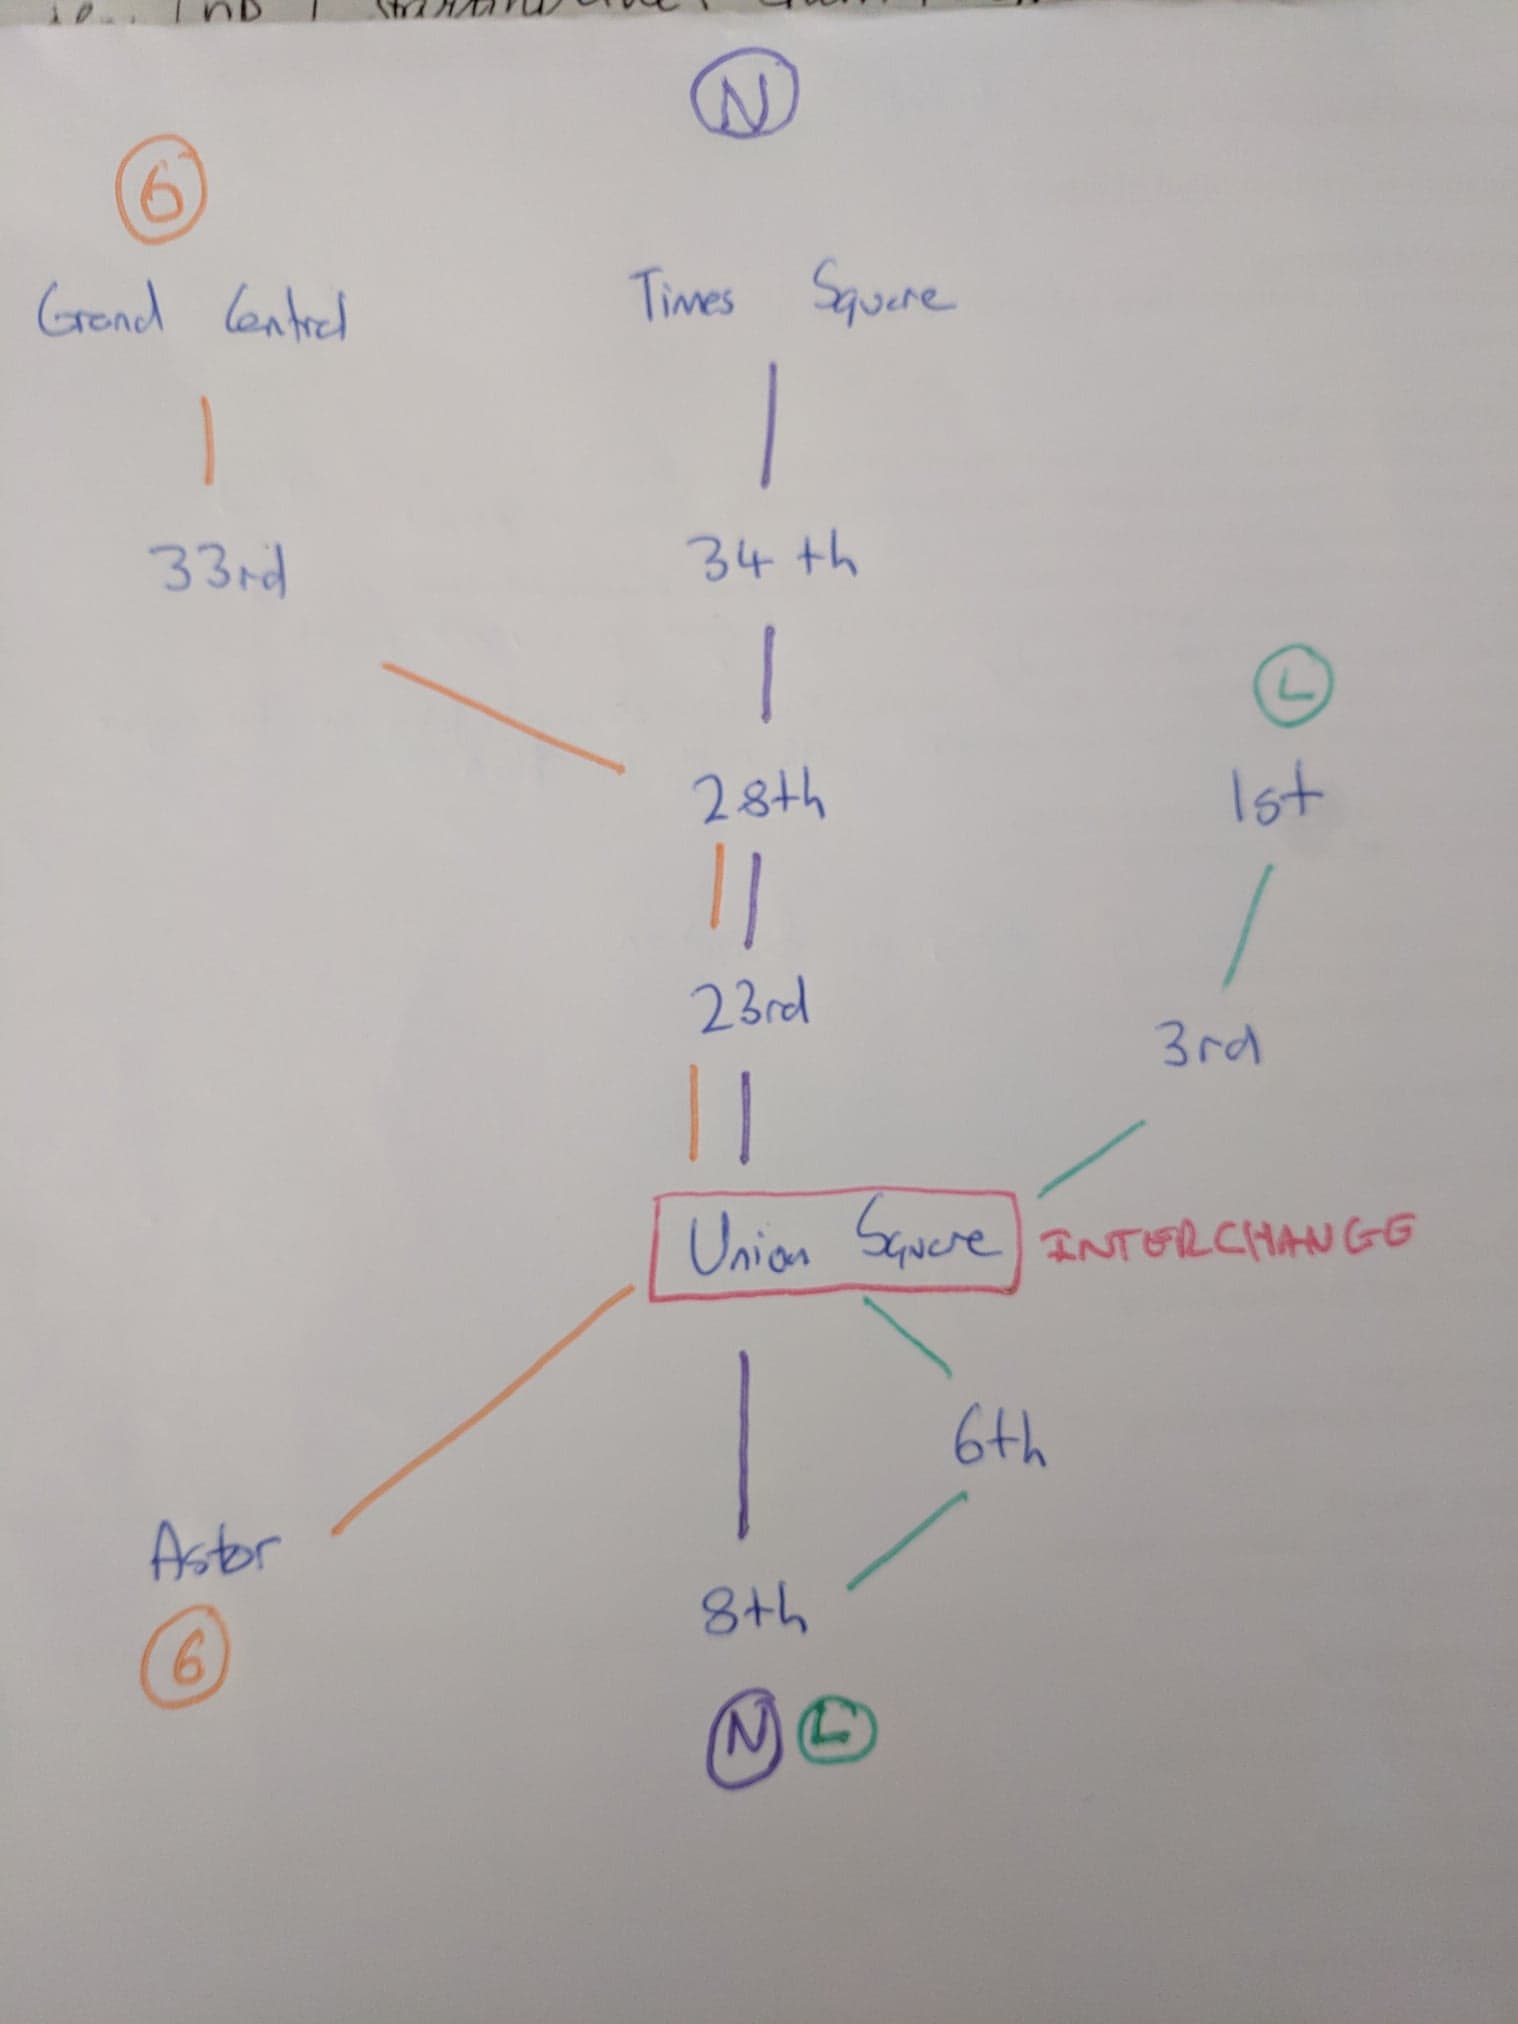 N
6
Grand Central
Times Square
33rd
34th
L
28th
1st
23rd
3rd
Union Square
INTERCHANGE
6th
Astor
8th
6
N L